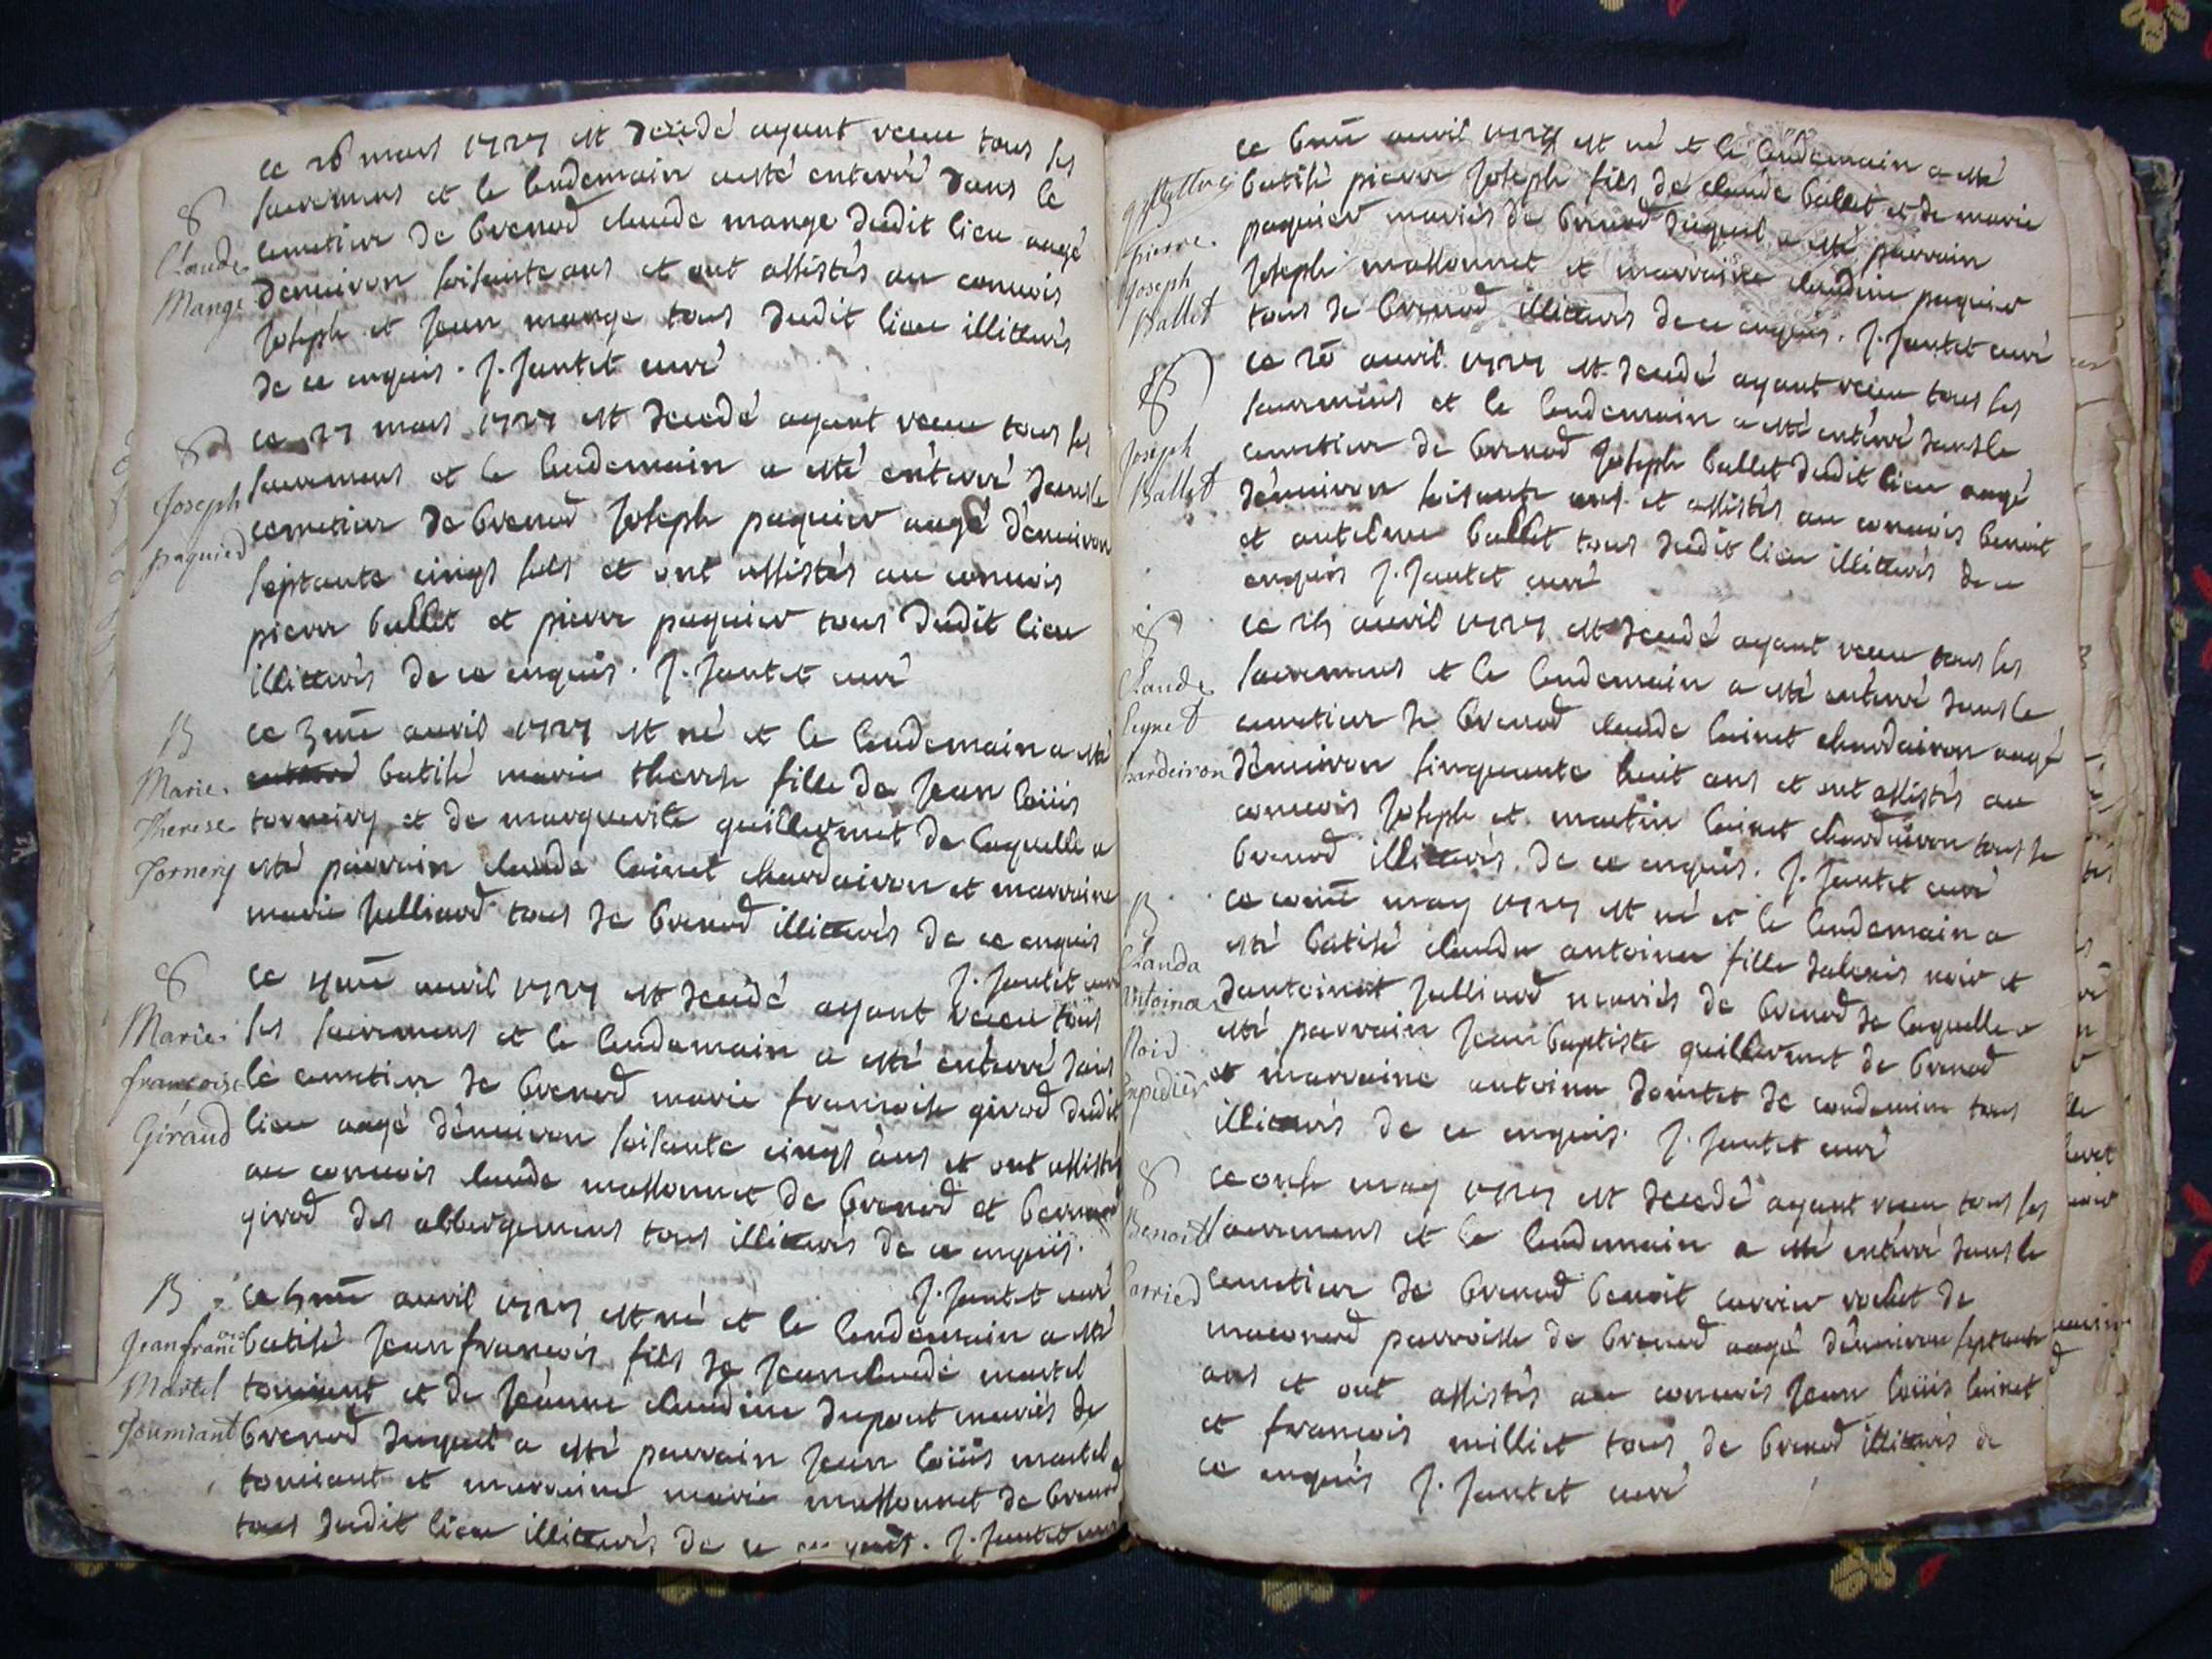 ce 26 mars 1727 est decedé ayant receu tous ses
sacremens et le lendemain aesté enterré dans le
cemetier de brenod claude mange dudit lieu aagé
denuiron soisante ans et ont assistés au conuois
joseph et jean mange tous dudit lieu illiterés
de ce enquis. j. jantet curé
Claude
Mange
ce 27 mars 1727 est decedé ayant receu tous ses
sacremens et le lendemain a esté enterré dans le
cemetier de brenod joseph paquier aagé denuiron
septante cinqs ans et ont assistés au conuois
pierre ballet et pierre paquier tous dudit lieu
illiterés de ce enquis. j. jantet curé
Joseph
paquied
ce 3me auril 1727 est né et le lendemain a esté
batisé marie therese fille de jean loüis
torneiry et de marguerite guillermet de laquelle a
esté parrain claude loinet chardairon et marraine
marie julliard tous de brenod illiterés de ce enquis
j. jantet curé
B
Marie
Therese
Tornery
ce 4me auril 1727 est decedé ayant receu tous
ses sacremens et le lendemain a esté enterré dans
le cemetier de brenod marie francoise girod dudit
lieu aagé denuiron soisante cinqs ans et ont assistés
au conuois claude massonnet de brenod et bernard
girod des abbergemens tous illiterés de ce enquis.
j. jantet curé
Marie
françoise
Giraud
ce 5me auril 1727 est né et le lendemain a esté
batisé jean francois fils de jean claude martel
tomiant et de jeanne claudine dupont mariés de
brenod duquel a esté parrain jean loüis martel
tomiant et marraine marie massonnet de brenod
tous dudit lieu illiterés de ce enquis. j. jantet curé
B
Jean françois
Martel
Toumiant
ce 6me auril 1727 est né et le lendemain a esté
batisé pierre joseph fils de claude ballet et de marie
paquier mariés de brenod duquel a esté parrain
joseph massonnet et marraine claudine paquier
tous de brenod illiterés de ce enquis. j. jantet curé
pierre
joseph
Ballet
ce auril 1727 est decedé ayant receu tous ses
sacremens et le lendemain a esté enterré dans le
cemetier de brenod joseph ballet dudit lieu aagé
denuiron soisante ans et assistés au conuois benoit
et antelme ballet tous dudit lieu illiterés de ce
enquis j. jantet curé
Joseph
Ballet
ce auril 1727 est decedé ayant receu tous ses
sacremens et le lendemain a esté enterré dans le
cemetier de brenod claude loinet chardairon aagé
denuiron sinquante huit ans et ont assistés au
conuois joseph et martin loinet chardairon tous de
brenod illiterés de ce enquis. j. jantet curé
Claude
ardeiron
ce may 1727 est né et le lendemain a
esté batisé clauda antoina fille dalexis noir et
dantoinat julliard mariés de brenod de laquelle a
esté parrain jean baptiste guillermet de brenod
et marraine antoina de condamine tous
illiterés de ce enquis. j. jantet curé
B
Clauda
antoina
Noid
ce onse may 1727 est decedé ayant receu tous ses
sacremens et le lendemain a esté enterré dans le
cemetier de brenod benoit carrier rochet de
maconod parroisse de brenod aagé denuiron septante
ans et ont assistés au conuois jean loüis loinet
et francois milliet tous de brenod illiterés de
ce enquis j. jantet curé
Benoit
Carried